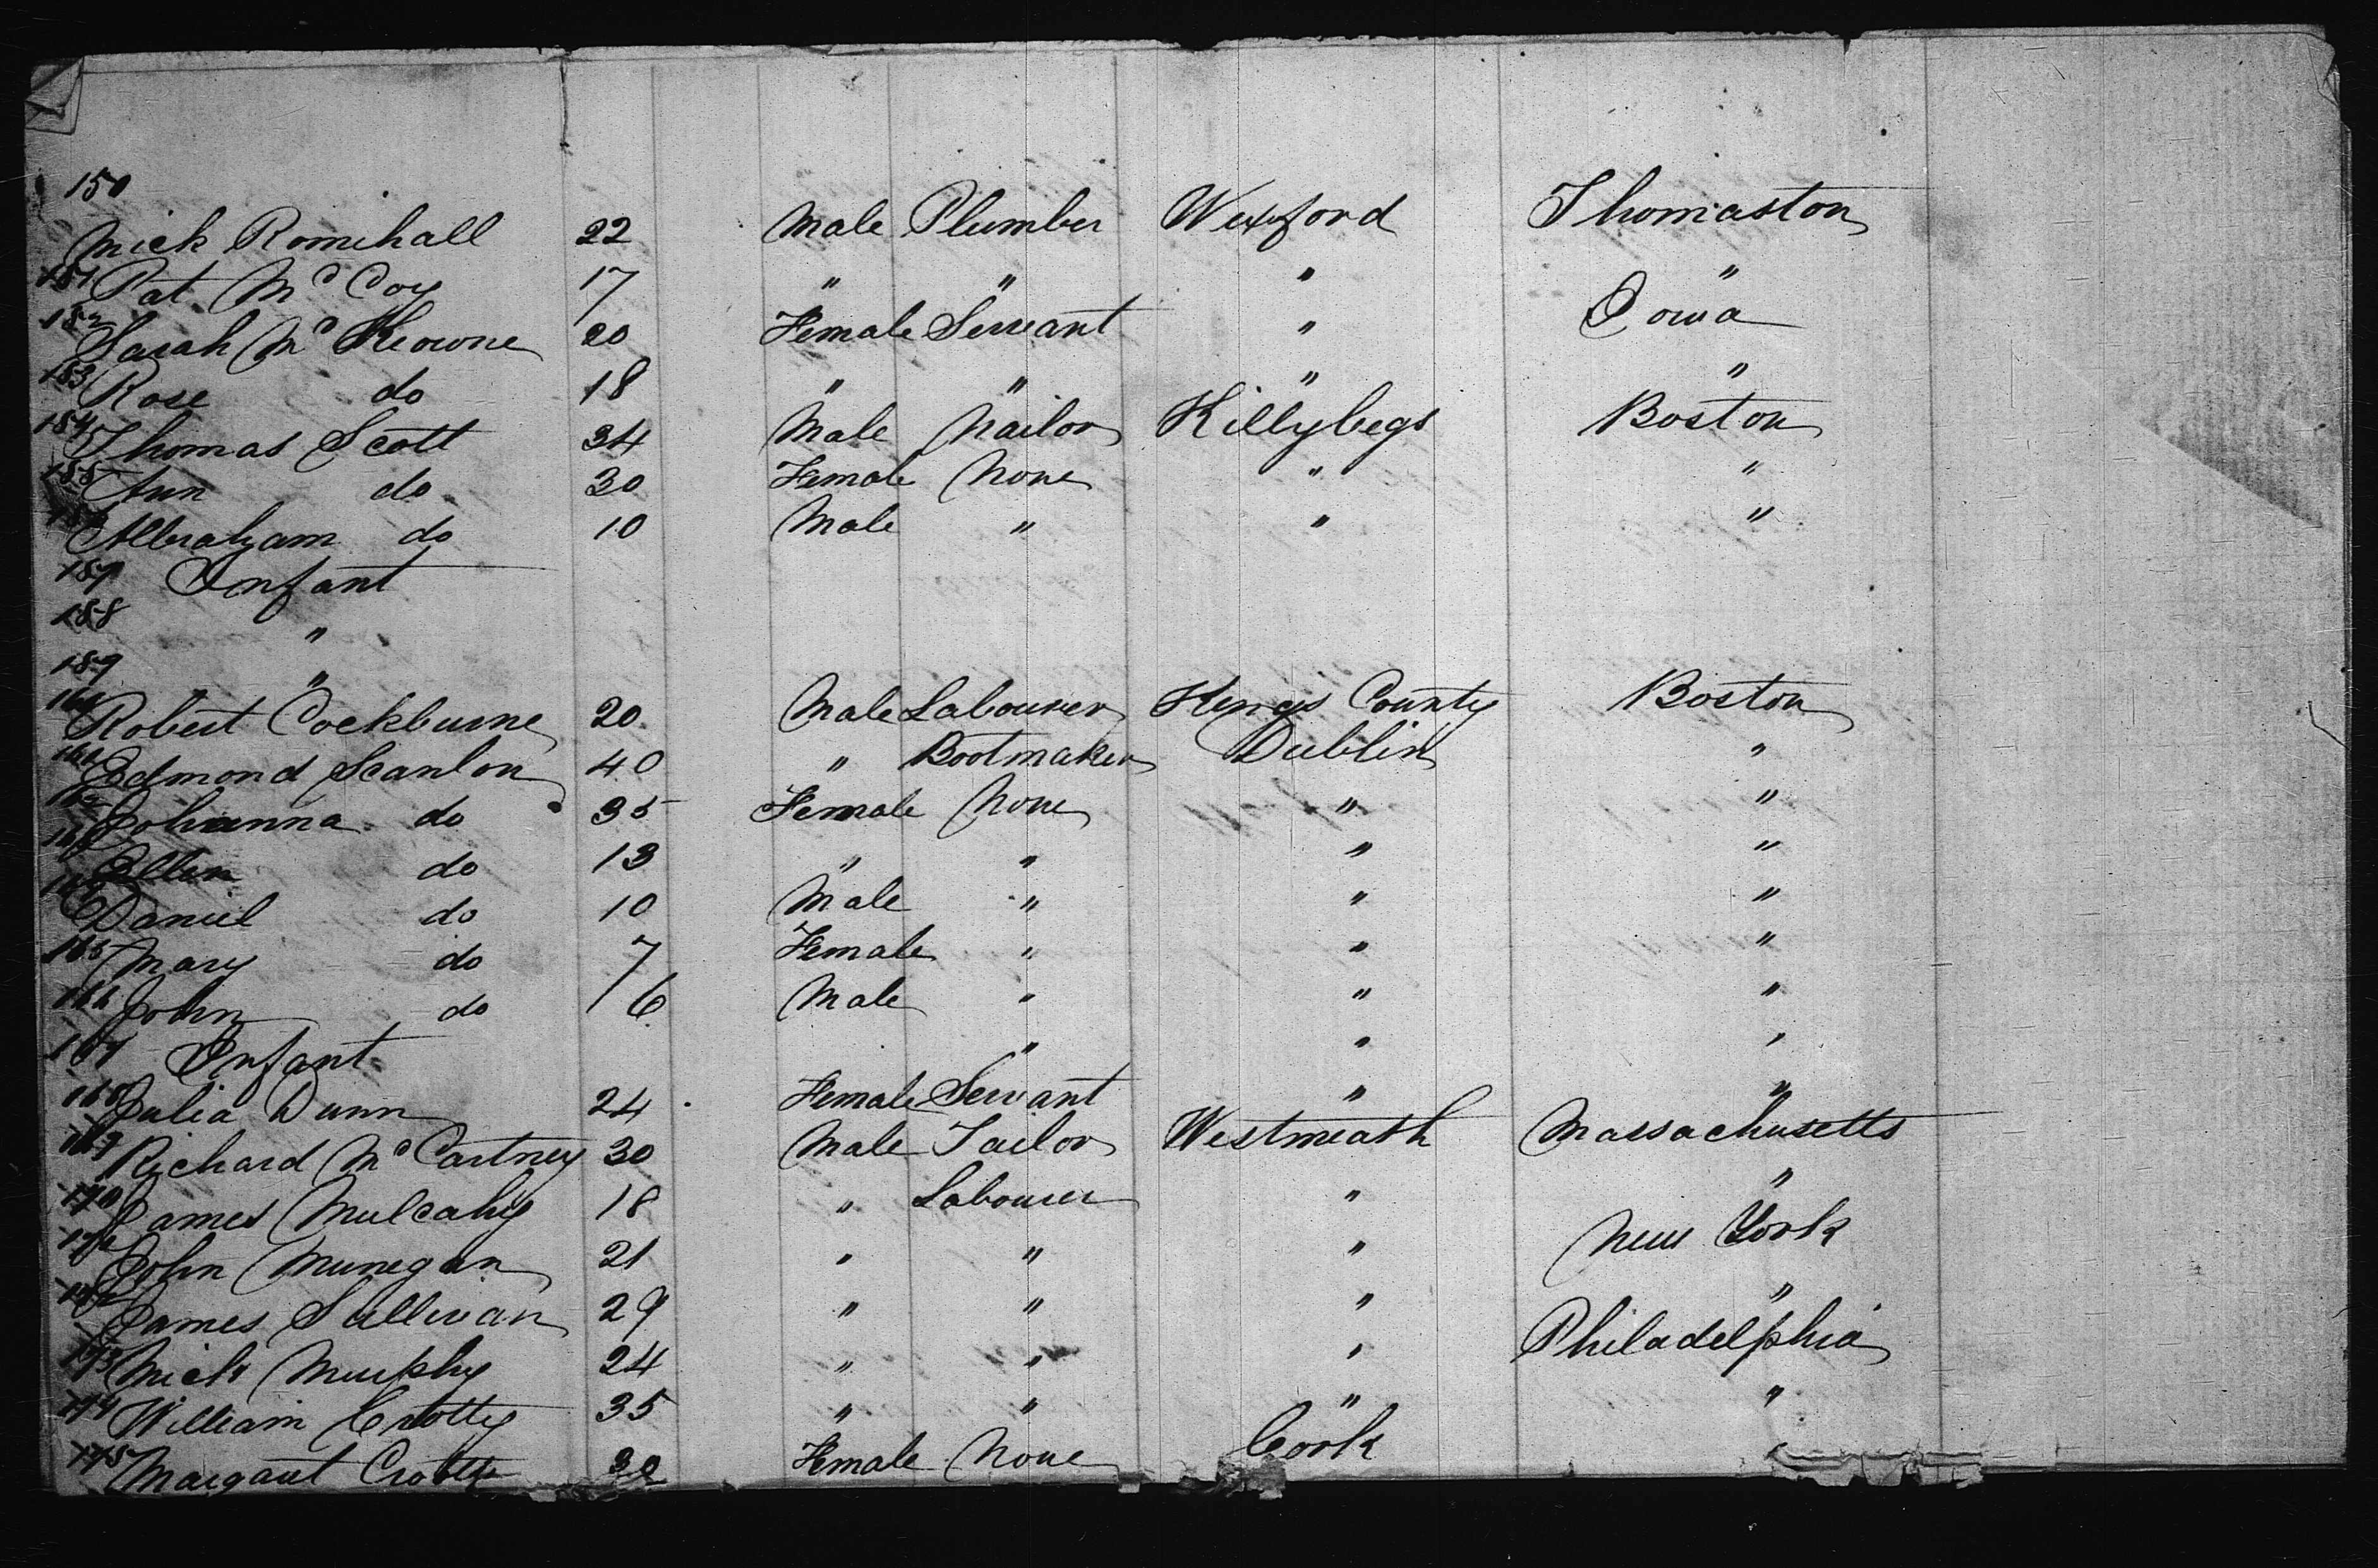 150
Mick Romihall 22 Male Plumber Wexford Thomaston
151 Pat McCoy 17 " " " "
152 Sarah McKeowne 20 Female Servant " Iowa
153 Rose do 18 " " " "
154 Thomas Scott 34 Male Nailor Killybegs Boston
155 Ann do 30 Female None " "
Abraham do 10 Male " " "
157 Infant
158 "
159 "
160 Robert Cockburne 20 Male Labourer Kings County Boston
161 Edmond Scanlon 40 " Bootmaker Dublin "
162 Johanna do 35 Female None " "
163 Ellen do 13 " " " "
164 Daniel do 10 Male " " "
165 Mary do 7 Female " " "
166 John do 6 Male " " "
167 Infant " " "
168 Julia Dunn 24 Female Servant " "
169 Richard McCartney 30 Male Tailor Westmeath Massachusetts
170 James Mulcahy 18 " Labourer " "
171 John Munegan 21 " " " New York
172 James Sullivan 29 " " " "
173 Mick Murphy 24 " " " Philadelphia
174 William Crotty 35 " " " "
175 Margaret Crotty 30 Female None Cork "